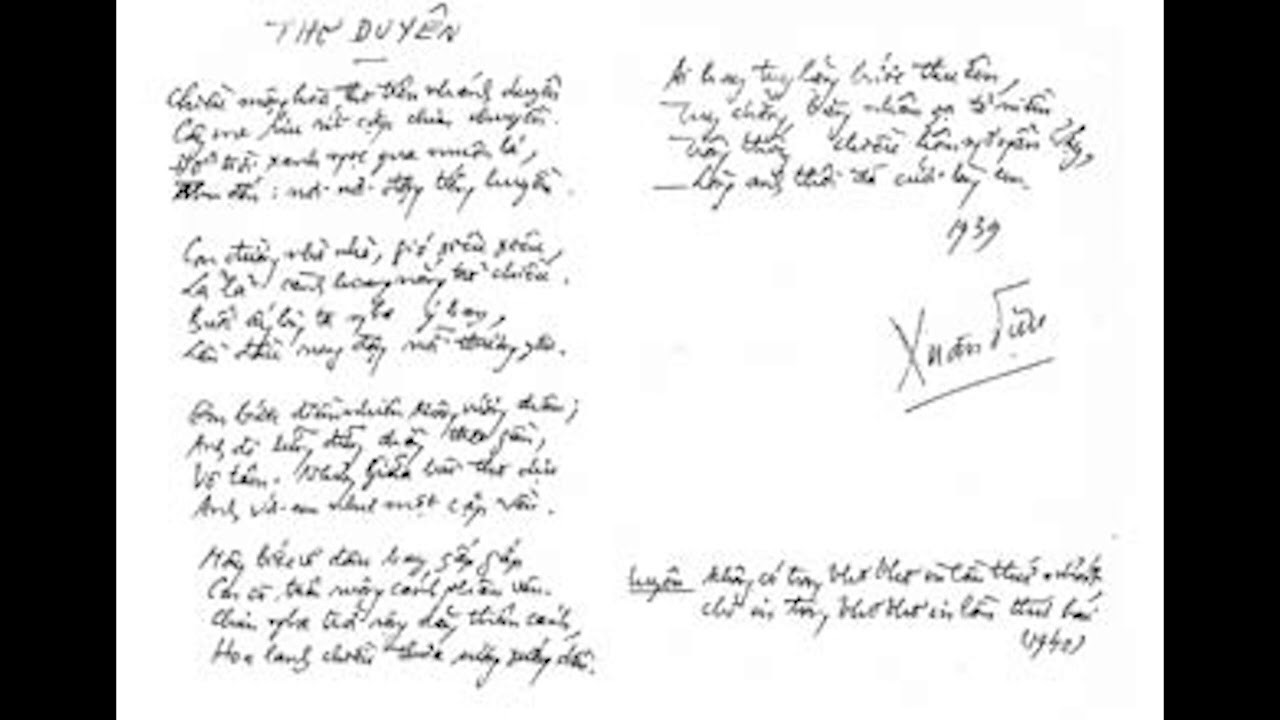 THƠ DUYÊN
Chiều mộng hoà thơ trên nhánh duyên
Cây me ríu rít cặp chim chuyền.
Đổ trời xanh ngọc qua muôn lá,
Thu đến: nơi nơi động tiếng huyền.
Con đường nhỏ nhỏ, gió xiêu xiêu,
Lả lả cành hoang nắng trở chiều.
Buổi ấy lòng ta nghe ý bạn,
Lần đầu rung động nỗi thương yêu.
Em bước điềm nhiên không vướng chân;
Anh đi lững đững chẳng theo gần,
Vô tâm. Nhưng giữa bài thơ dịu
Anh với em như một cặp vần.
Mây biếc về đâu bay gấp gấp
Con cò trên ruộng cánh phân vân.
Chim nghe trời rộng dang thêm cánh,
Hoa lạnh chiều thưa sương xuống dần.
Ai hay tuy lặng bước thu êm,
Tuy chẳng băng nhân gạ tỏ niềm
Trông thấy chiều hôm ngơ ngẩn vậy,
— Lòng anh thôi đã cưới lòng em.
1939
Xuân Diệu
không có trong Thơ Thơ in lần thứ nhất
chỉ in trong Thơ Thơ in lần thứ hai
(1940)